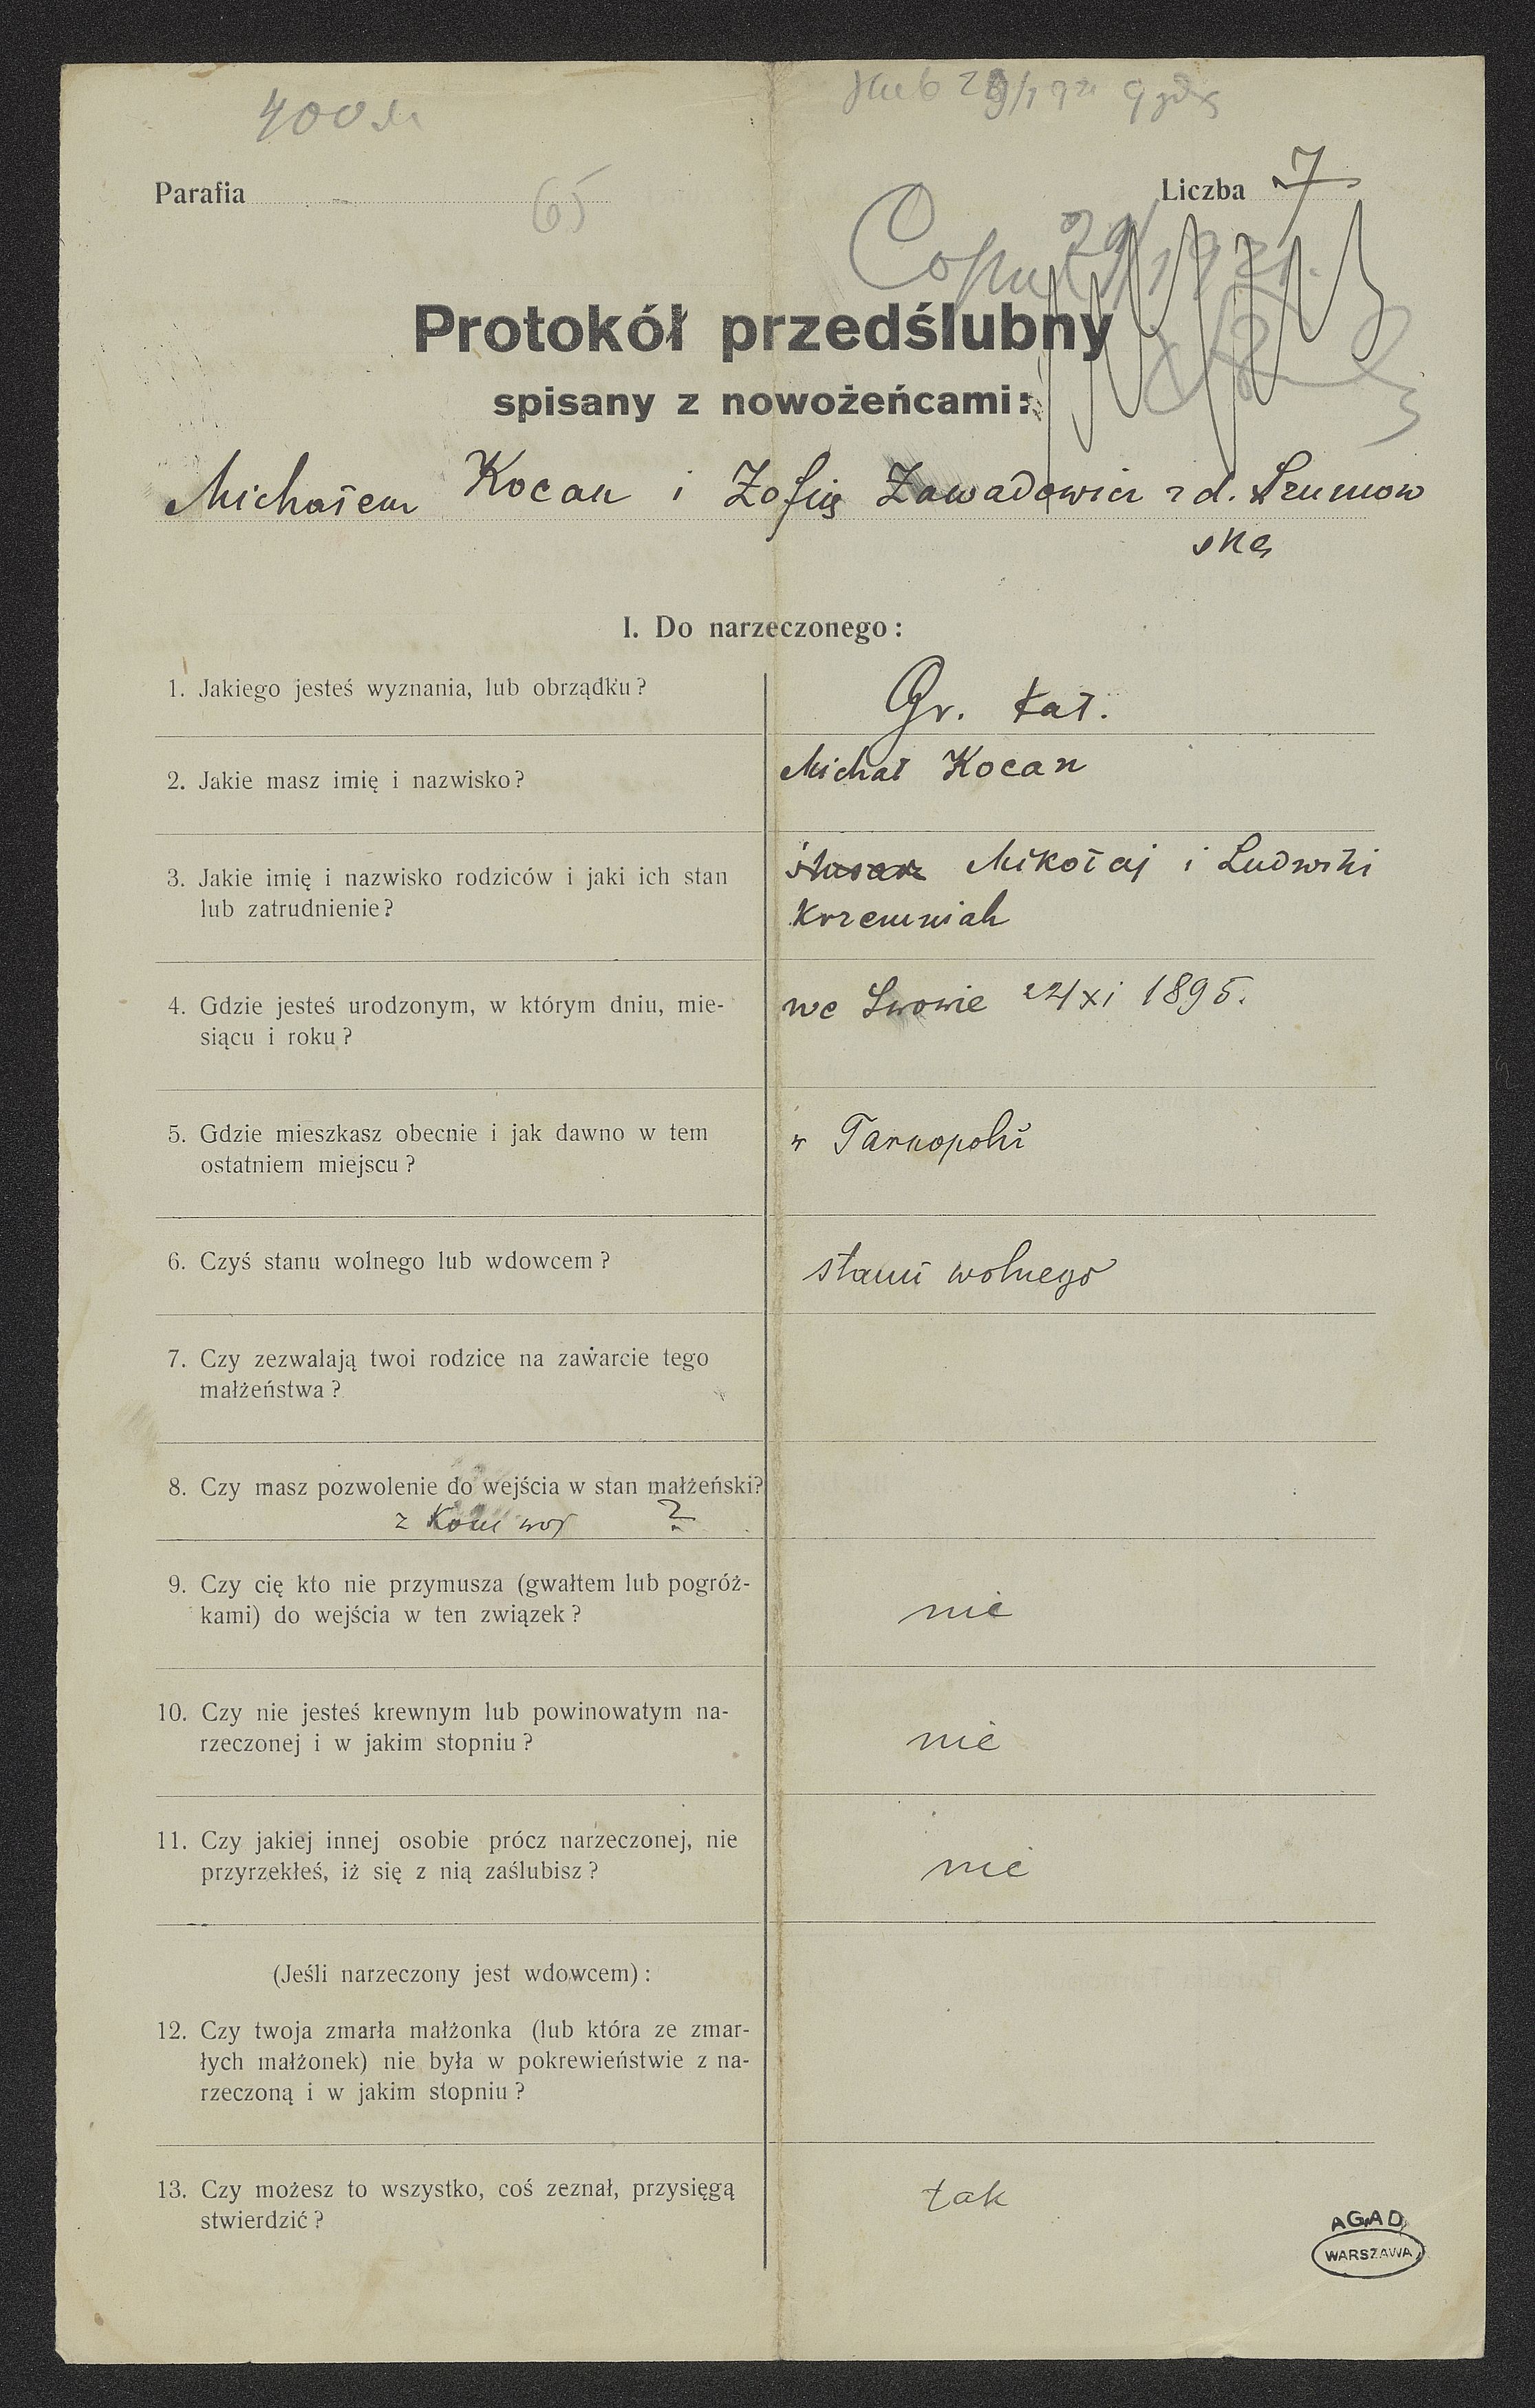 400 M
ślub 29/1 921 9
Parafia
65
Liczba 7
Copul 29/1 921.
Protokół przedślubny
spisany z nowożeńcami:
Michałem Kocan i Zofią Zawadowicz z d. Szumow
ską
I. Do narzeczonego:
1. Jakiego jesteś wyznania, lub obrządku?
Gr. kat.
2. Jakie masz imię i nazwisko?
Michał Kocan
3. Jakie imię i nazwisko rodziców i jaki ich stan
lub zatrudnienie?
ślusarz Mikołaj i Ludwiki
Krzemniak
4. Gdzie jesteś urodzonym, w którym dniu, mie-
siącu i roku?
we Lwowie 24 XI 1895.
5. Gdzie mieszkasz obecnie i jak dawno w tem
ostatniem miejscu?
w Tarnopolu
6. Czyś stanu wolnego lub wdowcem?
stanu wolnego
7. Czy zezwalają twoi rodzice na zawarcie tego
małżeństwa?
8. Czy masz pozwolenie do wejścia w stan małżeński?
z ?
9. Czy cię kto nie przymusza (gwałtem lub pogróż-
kami) do wejścia w ten związek?
nie
10. Czy nie jesteś krewnym lub powinowatym na-
rzeczonej i w jakim stopniu?
nie
11. Czy jakiej innej osobie prócz narzeczonej, nie
przyrzekłeś, iż się z nią zaślubisz?
nie
(Jeśli narzeczony jest wdowcem):
12. Czy twoja zmarła małżonka (lub która ze zmar-
łych małżonek) nie była w pokrewieństwie z na-
rzeczoną i w jakim stopniu?
13. Czy możesz to wszystko, coś zeznał, przysięgą
stwierdzić?
tak
AGAD
WARSZAWA